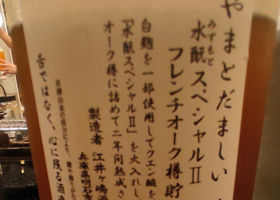 やまとだましい
みずもと
水酛スペシャルⅡ
フレンチオーク樽貯
白麹を一部使用してクエン酸を
「水酛スペシャルⅡ」を火入れし、
オーク樽に詰めて二年間熟成さ
製造者 江井ヶ嶋酒
兵庫県明石市
舌ではなく、心に残る酒造